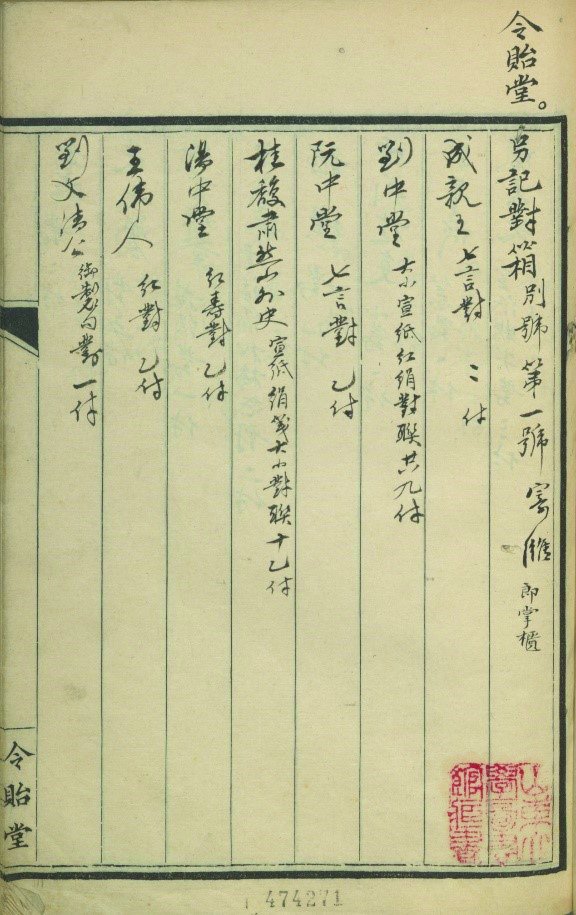 令貽堂。
另記對箱別號第一號 寄濰 即掌櫃
成親王 七言對 二付
劉中堂 大小宣紙紅絹對聯共九付
阮中堂 七言對 乙付
桂馥肅然山外史 宣紙絹箋大小對聯十乙付
湯中堂 紅壽對 乙付
王偉人 紅對 乙付
劉文清公 御製句對 一付
令貽堂
山東大學圖書館
474271